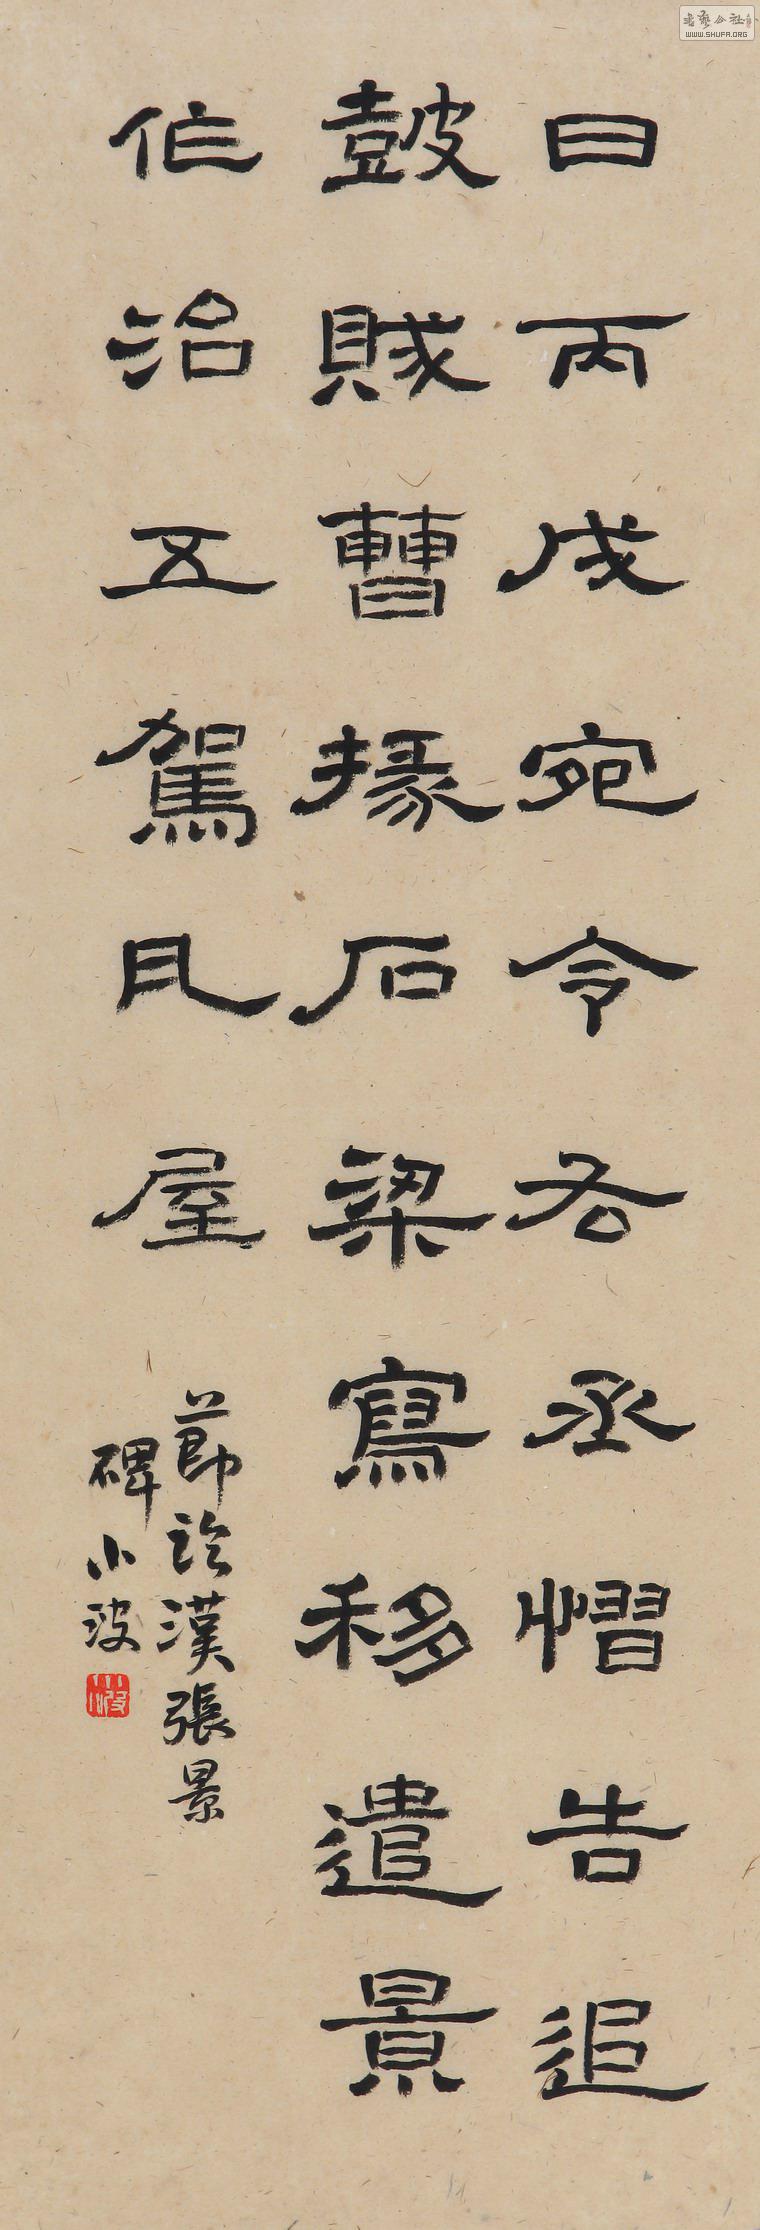 日丙戌宛令右丞慴告追
鼓賊曹掾石梁寫移遣景
作治五駕瓦屋
節臨漢張景
碑小波
小波
書藝公社
WWW.SHUFA.ORG